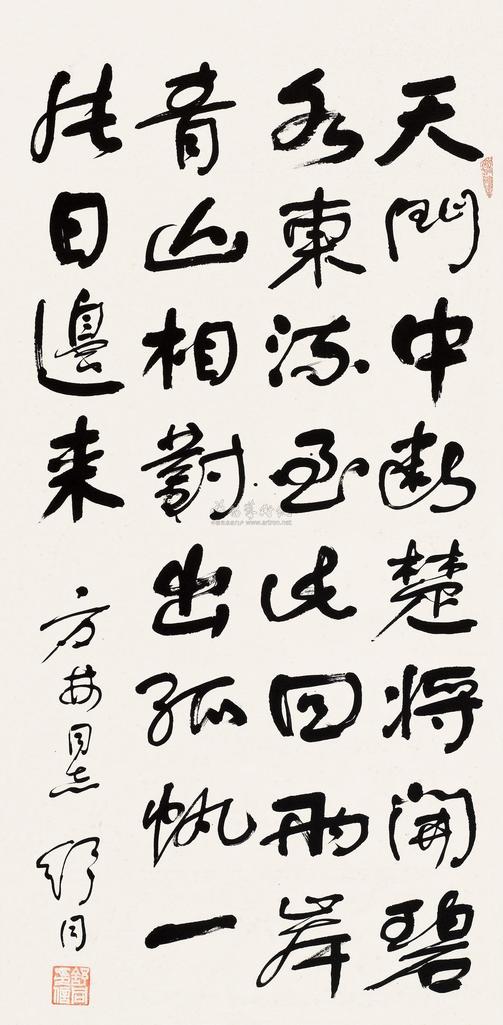 天門中斷楚将開碧
水東流至此回兩岸
青山相對出孤帆一
片日邊来
方林同志 舒同
www.artron.net